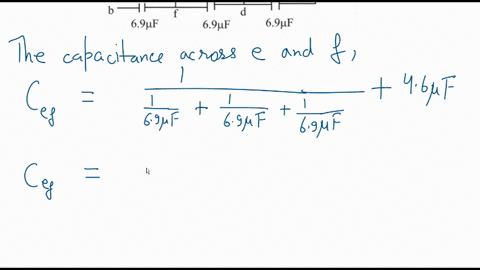 b f d
6.9μF 6.9μF 6.9μF
The capacitance across e and f,
C_ef = 1 / (1/6.9μF + 1/6.9μF + 1/6.9μF) + 4.6μF
C_ef =